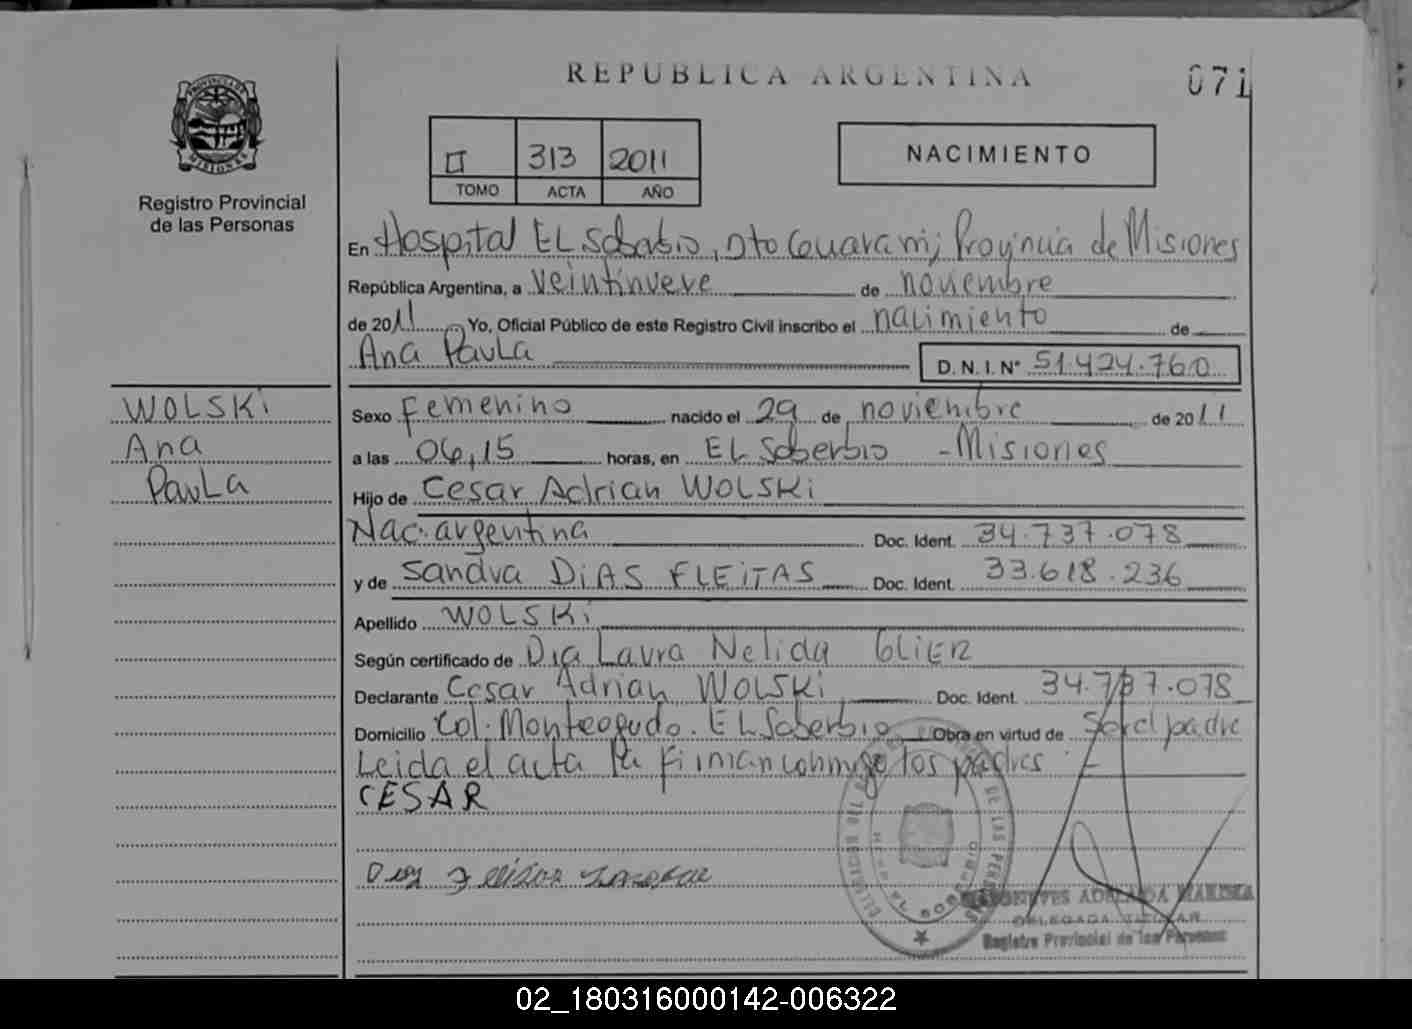 REPUBLICA ARGENTINA
071
PROVINCIA DE MISIONES
Registro Provincial
de las Personas
II 313 2011
TOMO ACTA AÑO
NACIMIENTO
En Hospital EL Soberbio, Dto Guarani, Provincia de Misiones
República Argentina, a veintinueve de noviembre
de 2011 Yo, Oficial Público de este Registro Civil inscribo el nacimiento de
Ana Paula D.N.I. Nº 51.424.760
WOLSKi
Ana
Paula
Sexo femenino nacido el 29 de noviembre de 2011
a las 06,15 horas, en EL Soberbio - Misiones
Hijo de Cesar Adrian WOLSKi
Nac. argentina Doc. Ident. 34.737.078
y de Sandra DiAS FLEiTAS Doc. Ident. 33.618.236
Apellido WOLSKi
Según certificado de Dra Laura Nelida GLiER
Declarante Cesar Adrian WOLSKi Doc. Ident. 34.737.078
Domicilio Col. Monteagudo. EL Soberbio Obra en virtud de Ser el padre
Leida el acta la firman conmigo los padres -
CESAR
ADELAIDA
DELEGADA TITULAR
Registro Provincial de las Personas
02_180316000142-006322